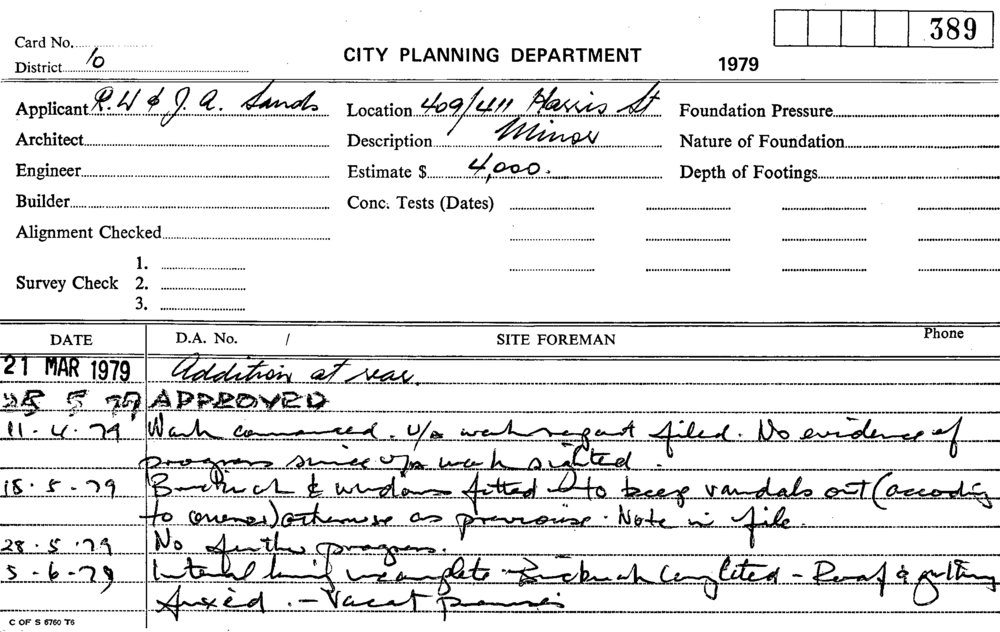 389
Card No.
CITY PLANNING DEPARTMENT 1979
District 10
Applicant R.W & J.A. Sands Location 409/411 Harris St Foundation Pressure
Architect Description Minor Nature of Foundation
Engineer Estimate $ 4,000. Depth of Footings
Builder Conc. Tests (Dates)
Alignment Checked
1.
Survey Check 2.
3.
DATE D.A. No. / SITE FOREMAN Phone
21 MAR 1979 Addition at rear.
5 79 APPROVED
11.4.79 Work commenced. U/a work report filed. No evidence of
progress since u/a work sighted.
18.5.79 Brickwork & windows fitted to keep vandals out (according
to owner) otherwise as previous. Note in file.
28.5.79 No further progress.
5-6-79 Internal lining incomplete - Brickwork completed - Roof & guttering
fixed. - Vacant premises
C OF S 5760 T6